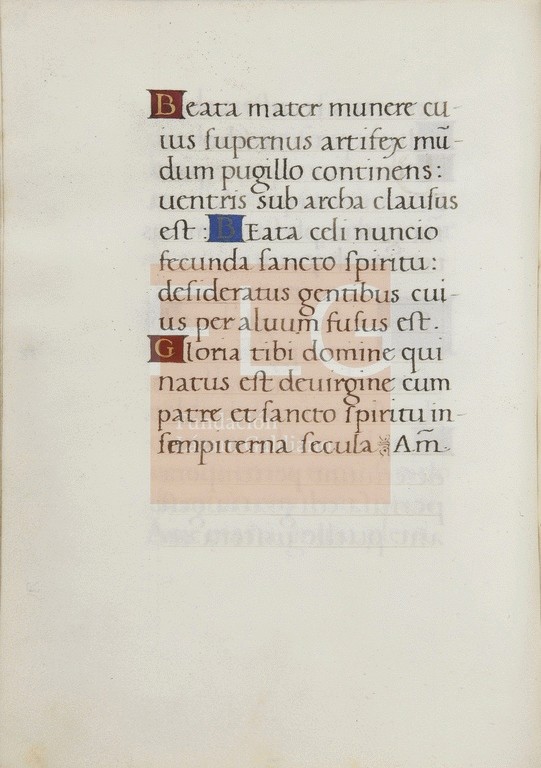 Beata mater munere cu-
ius ſupernus artifex mū-
dum pugillo continens:
uentris sub archa clauſus
eſt: BEata celi nuncio
fecunda ſancto ſpiritu:
deſideratus gentibus cui-
us per aluum fuſus eſt.
Gloria tibi domine qui
natus eſt deuirgine cum
patre et ſancto ſpiritu in-
ſempiterna ſecula Am̄.
FLG
Fundación